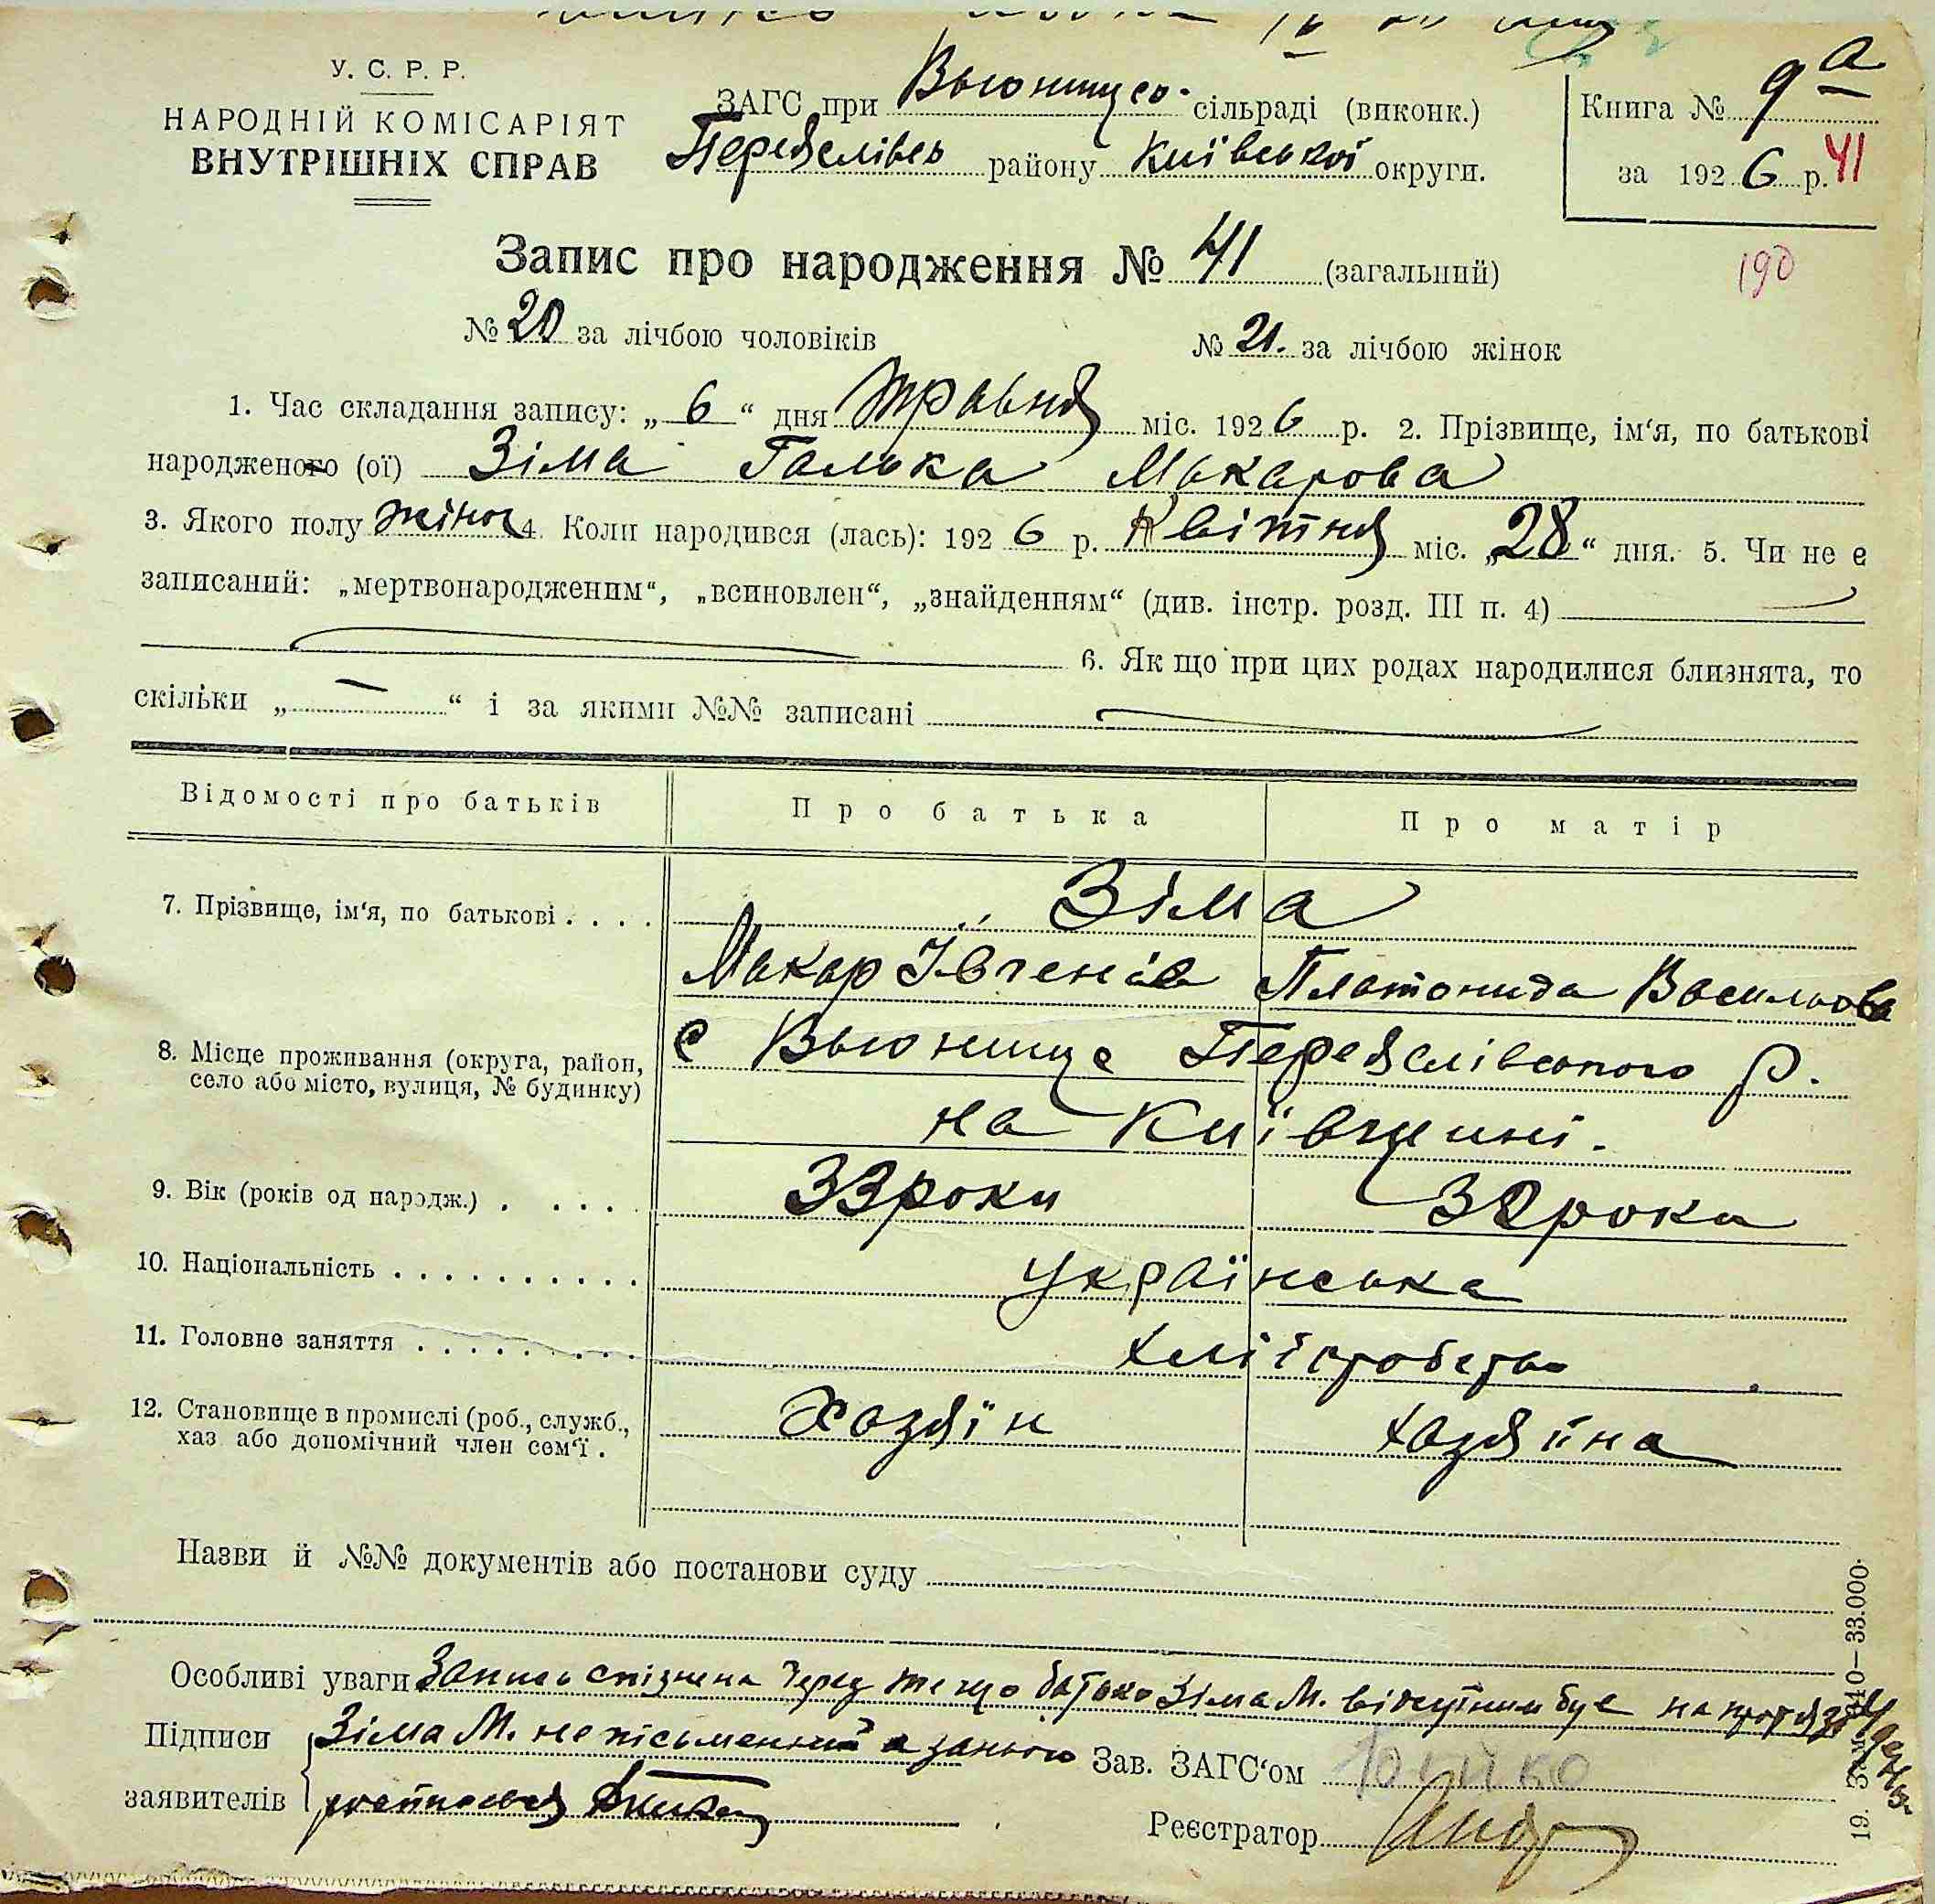 У. С. Р. Р.
НАРОДНІЙ КОМІСАРІЯТ
ВНУТРІШНІХ СПРАВ
ЗАГС при Вьюнищсо- сільраді (виконк.)
Переяслівсь району Київської округи.
Книга № 9а
за 1926 р. 41
Запис про народження № 41 (загальний)
190
№ 20 за лічбою чоловіків № 21. за лічбою жінок
1. Час складання запису: „ 6 “ дня травня міс. 1926 р. 2. Прізвище, ім‘я, по батькові
народженого (ої) Зіма Галька Макарова
3. Якого полу жіноч 4. Коли народився (лась): 1926 р. Квітня міс. „28“ дня. 5. Чи не є
записаний: „мертвонародженим“, „всиновлен“, „знайденням“ (див. інстр. розд. III п. 4)
6. Як що при цих родах народилися близнята, то
скільки „ — “ і за якими №№ записані
Відомості про батьків Про батька Про матір
7. Прізвище, ім‘я, по батькові . . . . Зіма
Макар Івченів Платонида Васильова
8. Місце проживання (округа, район, с Вьюнище Переяслівського р.
село або місто, вулиця, № будинку)
на Київщині.
9. Вік (років од народж.) . . . . . 33 роки 32 роки
10. Національність . . . . . . . . . . українська
11. Головне заняття . . . . . . . . . хліборобство
12. Становище в промислі (роб., служб., Хазяїн хазяйка
хаз або допомічний член сем‘ї .
Назви й №№ документів або постанови суду
Особливі уваги Запись спізнена через те що батько Зіма М. відсутним був на протязі 4 день
Підписи Зіма М. не письменний а за нього Зав. ЗАГС‘ом
заявителів розписався
Реєстратор
19. Зам. 410—33.000.